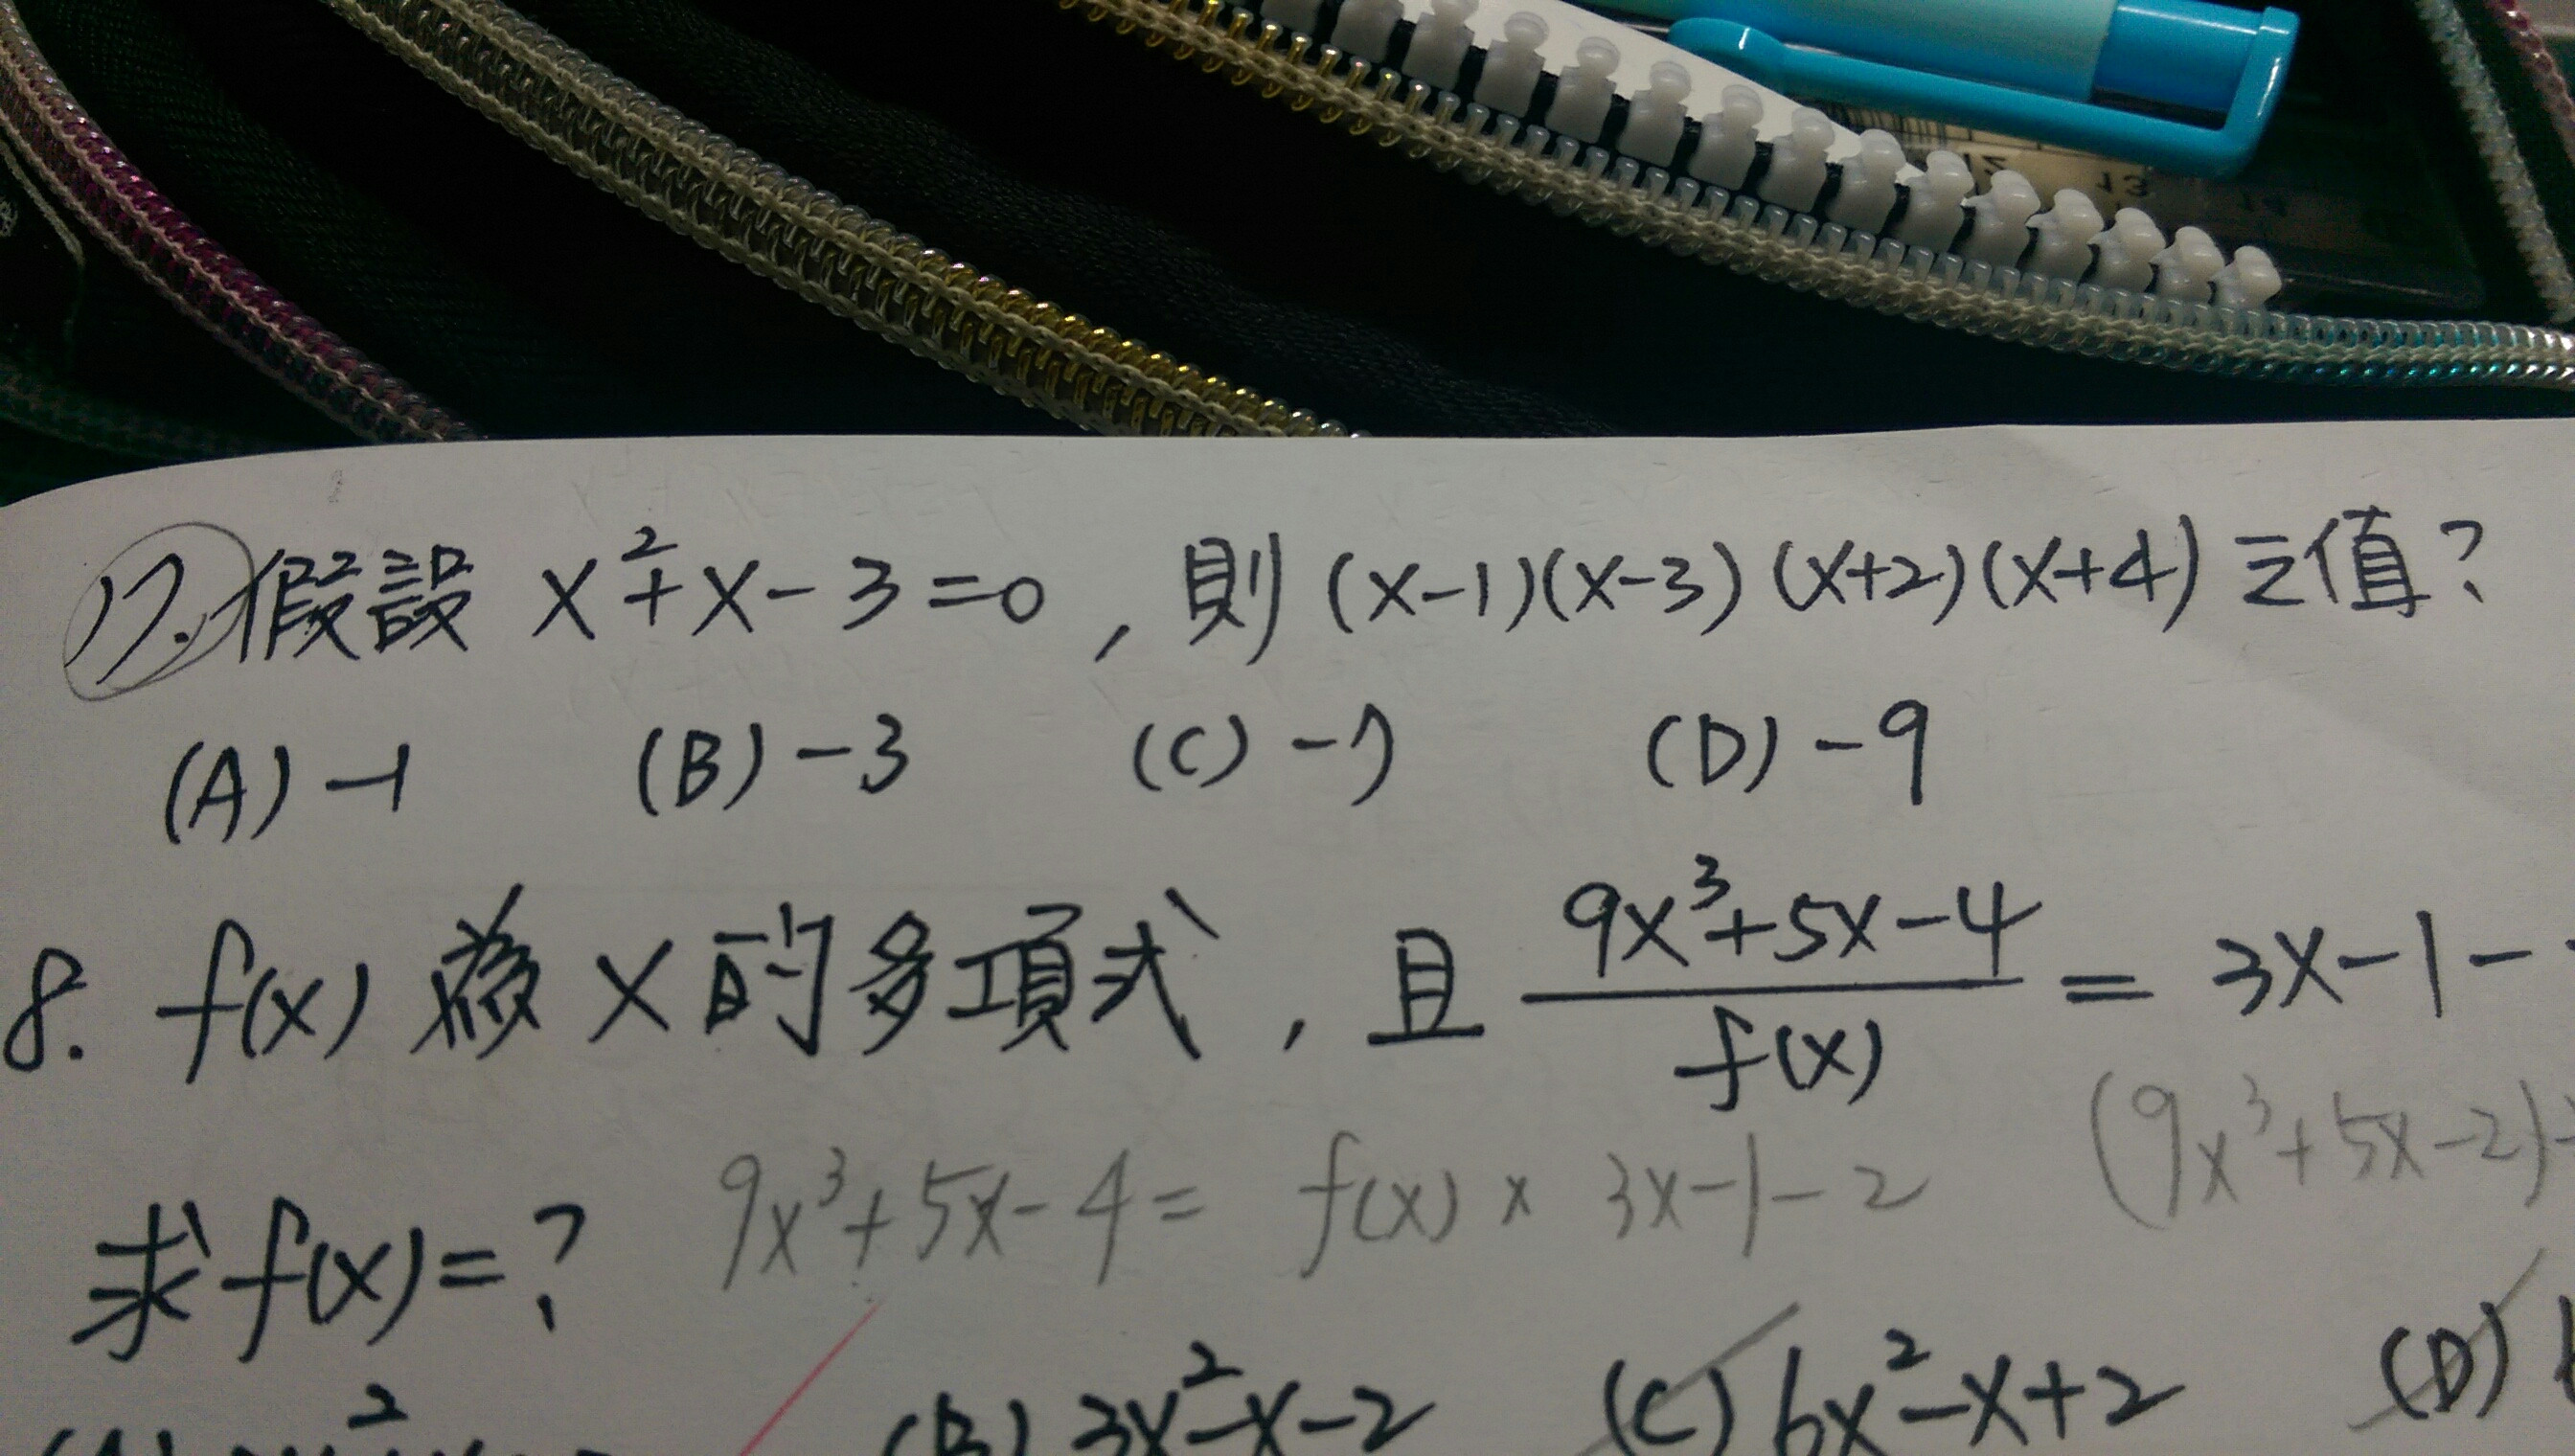 17. 假設 x²+x-3=0, 則 (x-1)(x-3)(x+2)(x+4) 之值?
(A) -1 (B) -3 (C) -7 (D) -9
8. f(x) 為 x 的多項式, 且 \frac{9x³+5x-4}{f(x)} = 3x-1-
9x³+5x-4 = f(x) × 3x-1-2 (9x³+5x-2)
求 f(x)=?
(B) 3x²-x-2 (C) 6x²-x+2 (D)